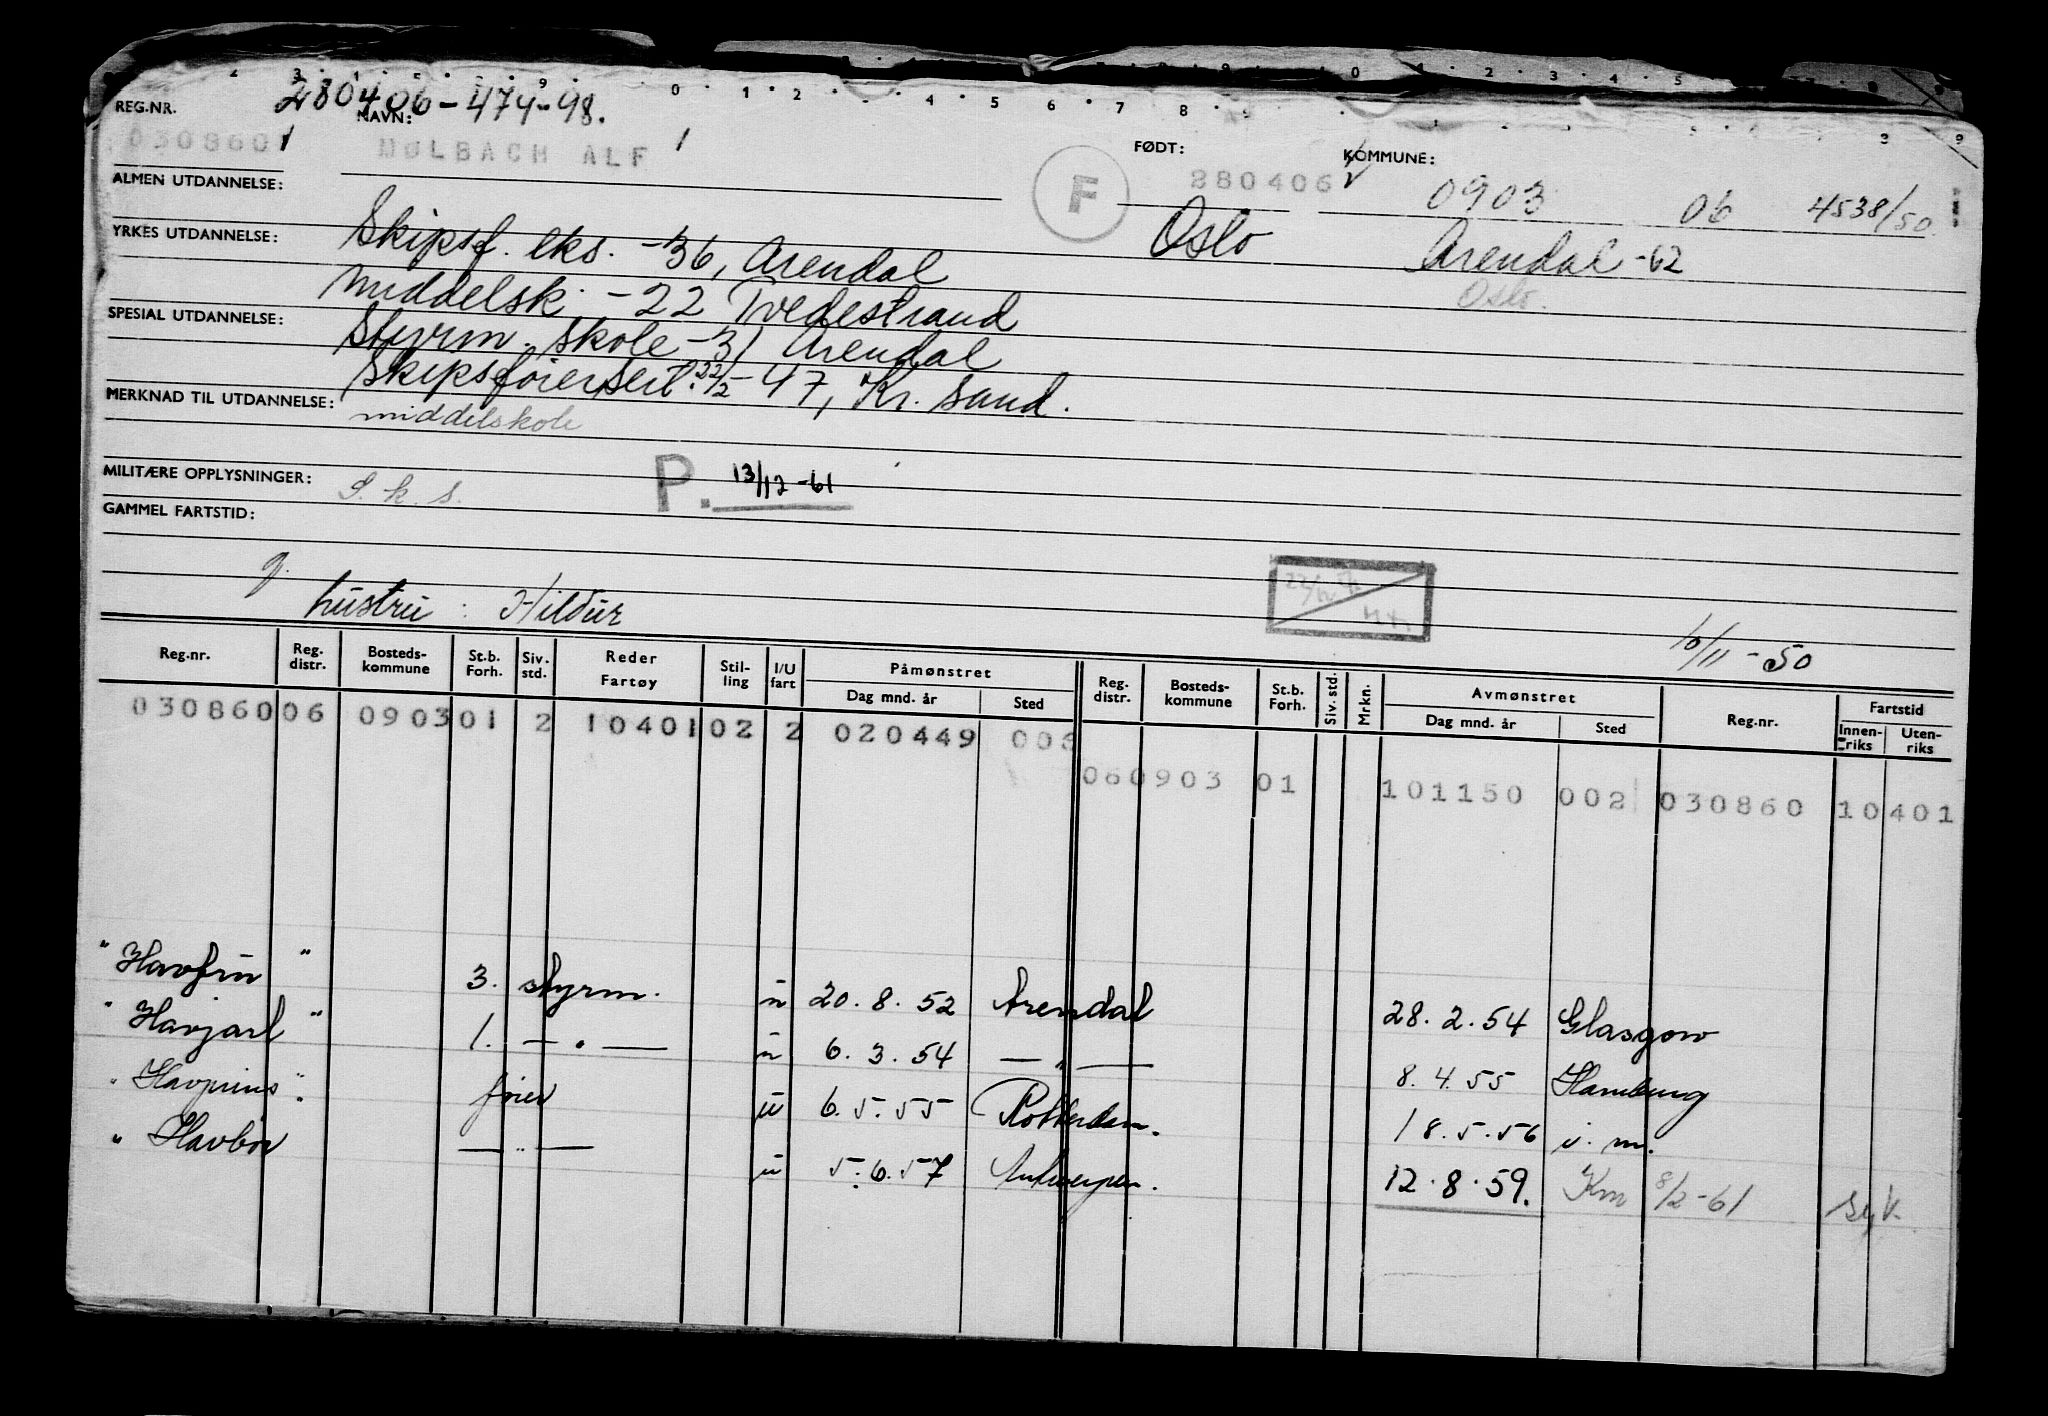 280406-474-98.
REG.NR. NAVN: FØDT: KOMMUNE:
030860 MØLBACH ALF F 280406 0903 06 4538/50
ALMEN UTDANNELSE:
Skipsf. eks. -36, Arendal Oslo Arendal -62
YRKES UTDANNELSE:
Middelsk. -22 Tvedestrand Oslo.
SPESIAL UTDANNELSE:
Styrm. skole -31 Arendal
Skipsførersert. 22/2 -47, Kr. sand.
MERKNAD TIL UTDANNELSE:
middelskole
MILITÆRE OPPLYSNINGER: S.k.s. P. 13/12-61
GAMMEL FARTSTID:
g.
hustru : Hildur
10/11 - 50
Reg.nr. Reg. distr. Bosteds-kommune St.b. Forh. Siv. std. Reder Fartøy Stil-ling I/U fart Påmønstret Dag mnd. år Sted Reg. distr. Bosteds-kommune St.b. Forh. Siv. std. Mrkn. Avmønstret Dag mnd. år Sted Reg.nr. Fartstid Innen-riks Uten-riks
030860 06 0903 01 2 10401 02 2 020449
06 0903 01 101150 002 030860 10401
"Havfru" 3. styrm. u 20.8.52 Arendal 28.2.54 Glasgow
"Havjarl" 1. — " — u 6.3.54 — " — 8.4.55 Hamburg
"Havprins" fører u 6.5.55 Rotterdam. 18.5.56 i.m.
"Havbør — " — u 5.6.57 Antwerpen. 12.8.59. Km 8/2-61 syk.